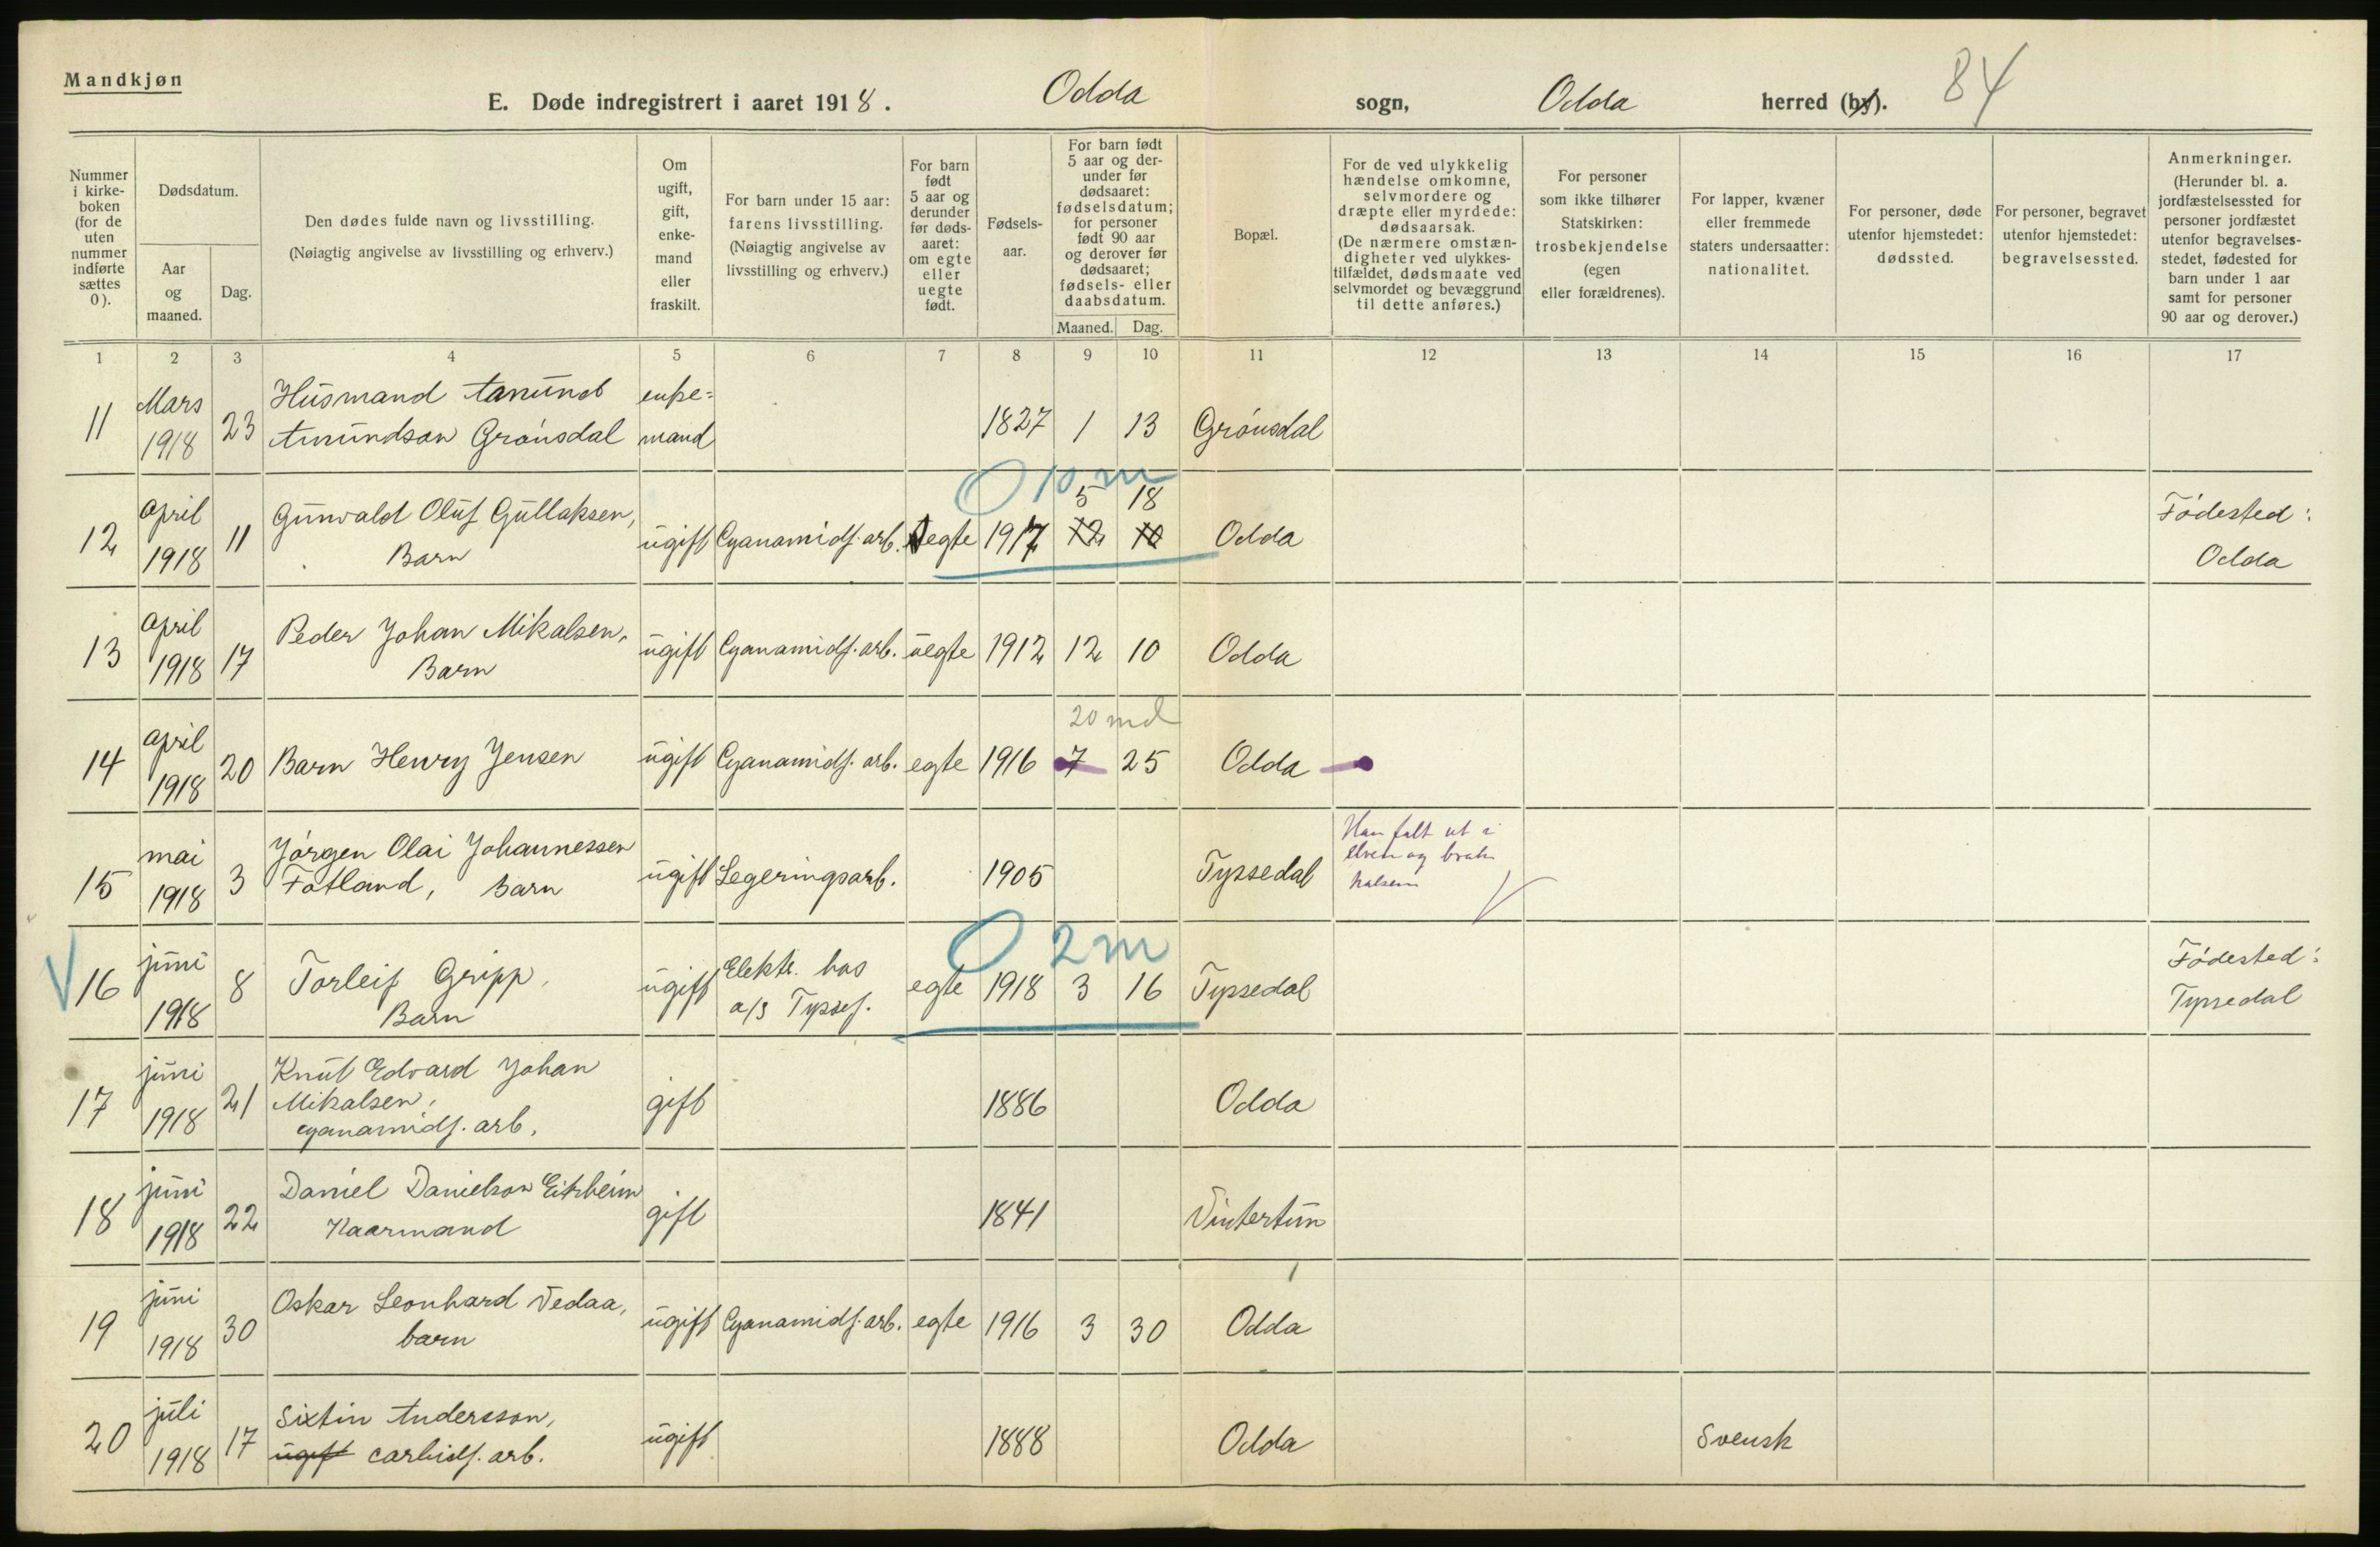 Mandkjøn
E. Døde indregistrert i aaret 1918. Odda sogn, Odda herred (by). 84
Nummer i kirke- boken (for de uten nummer indførte sættes 0).
Dødsdatum.
Aar og maaned.
Dag.
Den dødes fulde navn og livsstilling.
(Nøiagtig angivelse av livsstilling og erhverv.)
Om ugift, gift, enke- mand eller fraskilt.
For barn under 15 aar: farens livsstilling. (Nøiagtig angivelse av livsstilling og erhverv.)
For barn født 5 aar og derunder før døds- aaret: om egte eller uegte født.
Fødsels- aar.
For barn født 5 aar og der- under før dødsaaret: fødselsdatum; for personer født 90 aar og derover før dødsaaret; fødsels- eller daabsdatum.
Maaned. Dag.
Bopæl.
For de ved ulykkelig hændelse omkomne, selvmordere og dræpte eller myrdede: dødsaarsak. (De nærmere omstæn- digheter ved ulykkes- tilfældet, dødsmaate ved selvmordet og bevæggrund til dette anføres.)
For personer som ikke tilhører Statskirken: trosbekjendelse (egen eller forældrenes).
For lapper, kvæner eller fremmede staters undersaatter: nationalitet.
For personer, døde utenfor hjemstedet: dødssted.
For personer, begravet utenfor hjemstedet: begravelsessted.
Anmerkninger. (Herunder bl. a. jordfæstelsessted for personer jordfæstet utenfor begravelses- stedet, fødested for barn under 1 aar samt for personer 90 aar og derover.)
1 2 3 4 5 6 7 8 9 10 11 12 13 14 15 16 17
Mars Husmand Amund enke=
11 1918 23 Amundson Grönsdal mand 1827 1 13 Grönsdal
0 10 m
april Gunvald Oluf Gullaksen, 5 18 Födested:
12 1918 11 Barn ugift Cyanamidf. arb. egte 1917 12 10 Odda Odda
april Peder Johan Mikalsen,
13 1918 17 Barn ugift Cyanamidf. arb. uegte 1912 12 10 Odda
20 md
april
14 1918 20 Barn Henry Jensen ugift Cyanamidf. arb. egte 1916 7 25 Odda
mai Jörgen Olai Johannessen Han falt ut i
15 1918 3 Fotland, Barn ugift Legeringsarb. 1905 Tyssedal elven og brak
halsen
0 2 m
juni Torleif Gripp, Elektr. hos Födested:
16 1918 8 Barn ugift a/s Tyssef. egte 1918 3 16 Tyssedal Tyssedal
juni Knut Edvard Johan
17 1918 21 Mikalsen, gift 1886 Odda
cyanamidf. arb.
juni Daniel Danielson Eitrheim
18 1918 22 Kaarmand gift 1841 Vintertun
juni Oskar Leonhard Vedaa,
19 1918 30 barn ugift Cyanamidf. arb. egte 1916 3 30 Odda
juli Sixtin Andersson,
20 1918 17 ugift carbidf. arb. ugift 1888 Odda Svensk